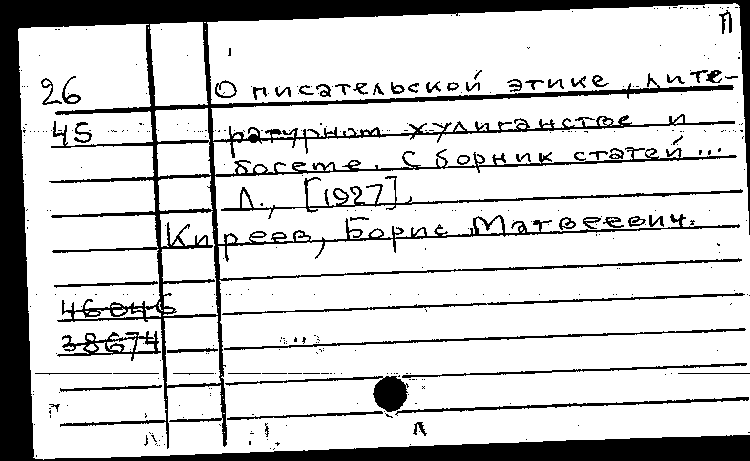 П
26 О писательской этике, лите-
45 ратурном хулиганстве и
богеме. Сборник статей...
Л., [1927].
Киреев, Борис Матвеевич.
46046
38674